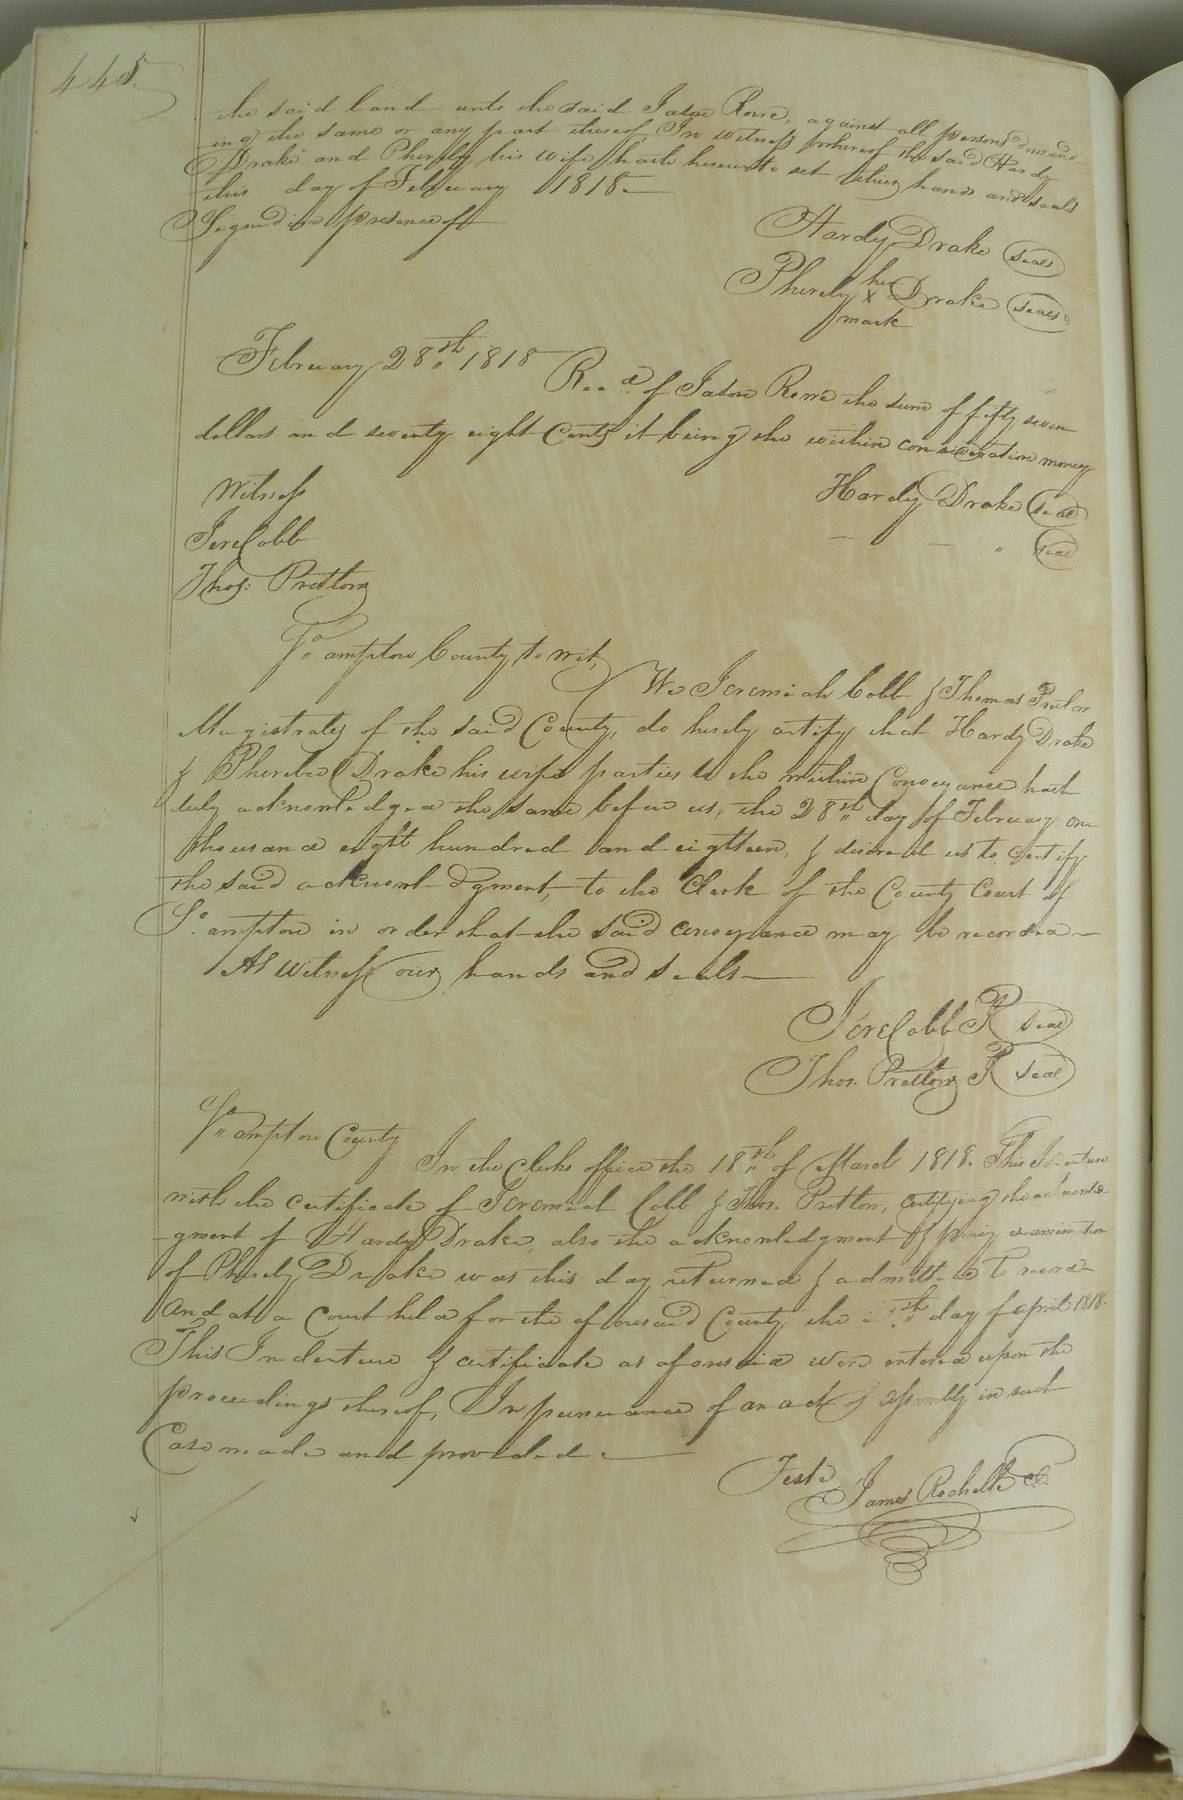 445
the said land unto the said Jason Rowe, against all persons demand-
ing the same or any part thereof, In witness whereof the said Hardy
Drake and Phereby his wife hath hereunto set their hands and seals
this day of February 1818—
Signed in presence of
Hardy Drake Seal
Phereby her X mark Drake Seal
February 28th 1818
Recd of Jason Rowe the sum of fifty seven
dollars and seventy eight Cents it being the within consideration money
Witness
Hardy Drake Seal
Jere Cobb
— — " Seal
Thos: Pretlow
So ampton County to wit,
We Jeremiah Cobb & Thomas Pretlow
Magistrates of the said County, do hereby certify that Hardy Drake
& Pherebe Drake his wife parties to the within Conveyance hath
duly acknowledged the same before us, the 28th day of February one
thousand eight hundred and eighteen, & desired us to certify
the said acknowledgment, to the Clerk of the County Court of
So ampton in order that the said conveyance may be recorded—
As witness our hands and seals—
Jere Cobb Seal
Thos. Pretlow Seal
So ampton County
In the Clerks office the 18th of March 1818. This Indenture
with the certificate of Jeremiah Cobb & Thos. Pretlow, certifying the acknowled-
gment of Hardy Drake, also the acknowledgment & privy examination
of Phereby Drake was this day returned & admitted to record
And at a Court held for the aforesaid County the th day of April 1818.
This Indenture & certificate as aforesaid were entered upon the
proceedings thereof, In pursuance of an act of assembly in such
Case made and provided.—
Teste
James Rochelle C.